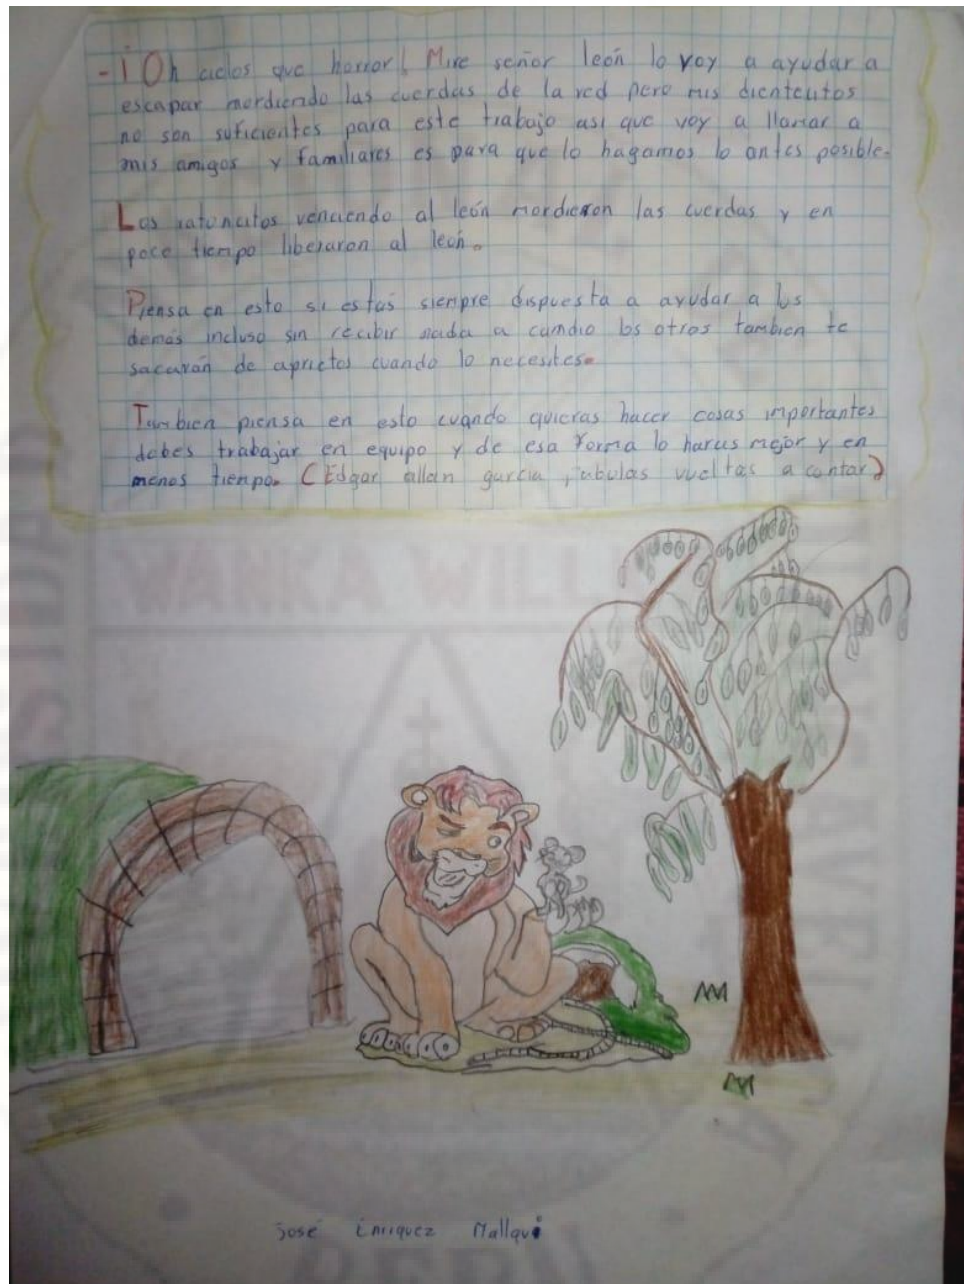 -¡Oh cielos que horror! Mire señor león lo voy a ayudar a
escapar mordiendo las cuerdas de la red pero mis dientcutos
no son suficientes para este trabajo asi que voy a llamar a
mis amigos y familiares es para que lo hagamos lo antes posible.
Los ratoncitos venciendo al león mordieron las cuerdas y en
poce tiempo liberaron al león.
Piensa en esto si estas siempre dispuesta a ayudar a los
demás incluso sin recibir nada a cambio los otros tambien te
sacarán de aprietos cuando lo necesites.
Tambien piensa en esto cuando quieras hacer cosas importantes
debes trabajar en equipo y de esa forma lo haras mejor y en
menos tiempo. (Edgar allan garcia, fabulas vueltas a contar)
WANKA WILL
José Enriquez Mallqui
PERU